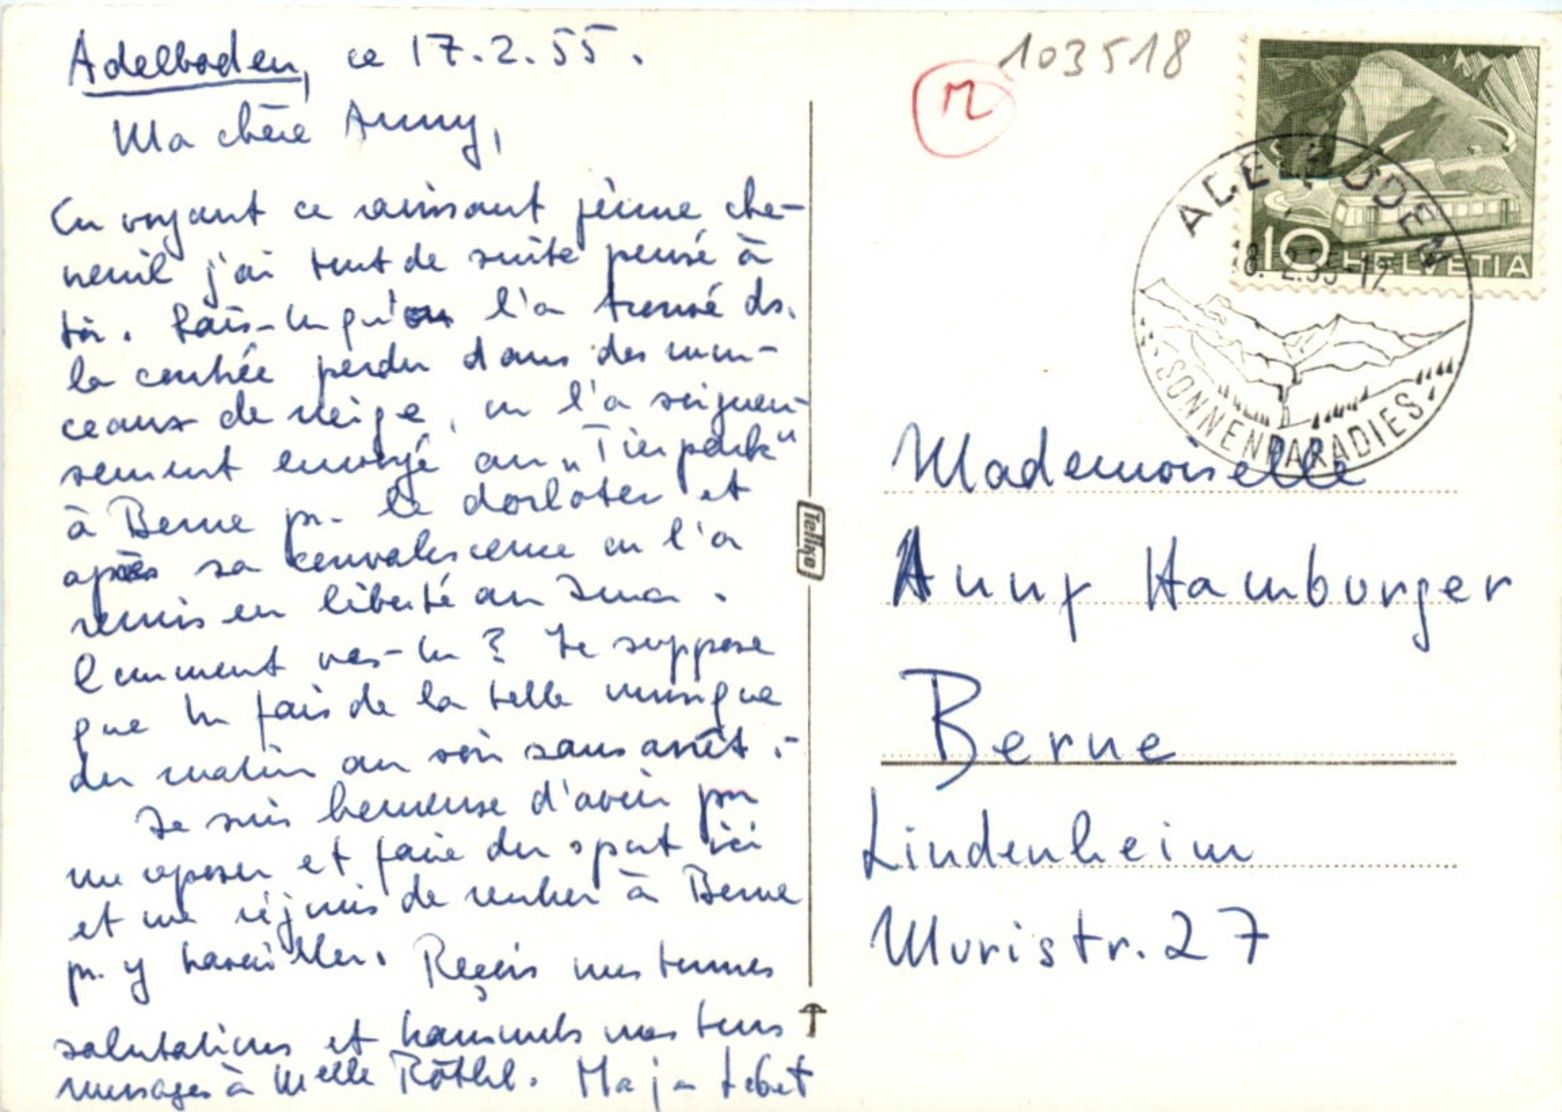 Adelboden, ce 17.2.55.
Ma chère Anny,
En voyant ce ravissant jeune che-
vreuil j'ai tout de suite pensé à
toi. Sais-tu qu'on l'a trouvé ds.
la contrée perdu dans des mon-
ceaux de neige, on l'a soigneu-
sement envoyé au „Tierpark"
à Berne pr. le dorloter et
après sa convalescence on l'a
remis en liberté au Jura.
Comment vas-tu? Je suppose
que tu fais de la belle musique
du matin au soir sans arrêt.-
Je suis heureuse d'avoir pu
me reposer et faire du sport ici
et me réjouis de rentrer à Berne
pr. y travailler. Reçois mes bonnes
salutations et transmets mes bons
messages à Melle Röthl. Maja Lebet
Tellko
M
103518
HELVETIA
10
ADELBODEN
18. 2.55-12
SONNENPARADIES
Mademoiselle
Anny Hamburger
Berne
Lindenheim
Muristr. 27